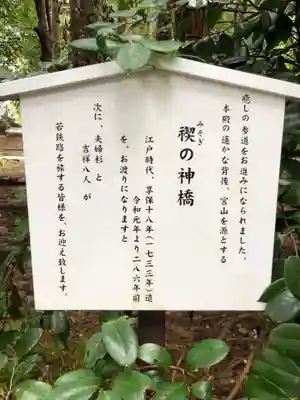 癒しの参道をお進みになられました。
本殿の遥かな背後、宮山を源とする
みそぎ
禊の神橋
江戸時代、享保十八年(一七三三年)造
令和元年より二八六年前
を、お渡りになりますと
次に、夫婦杉と
吉祥八人が
若狭路を旅する皆様を、お迎え致します。